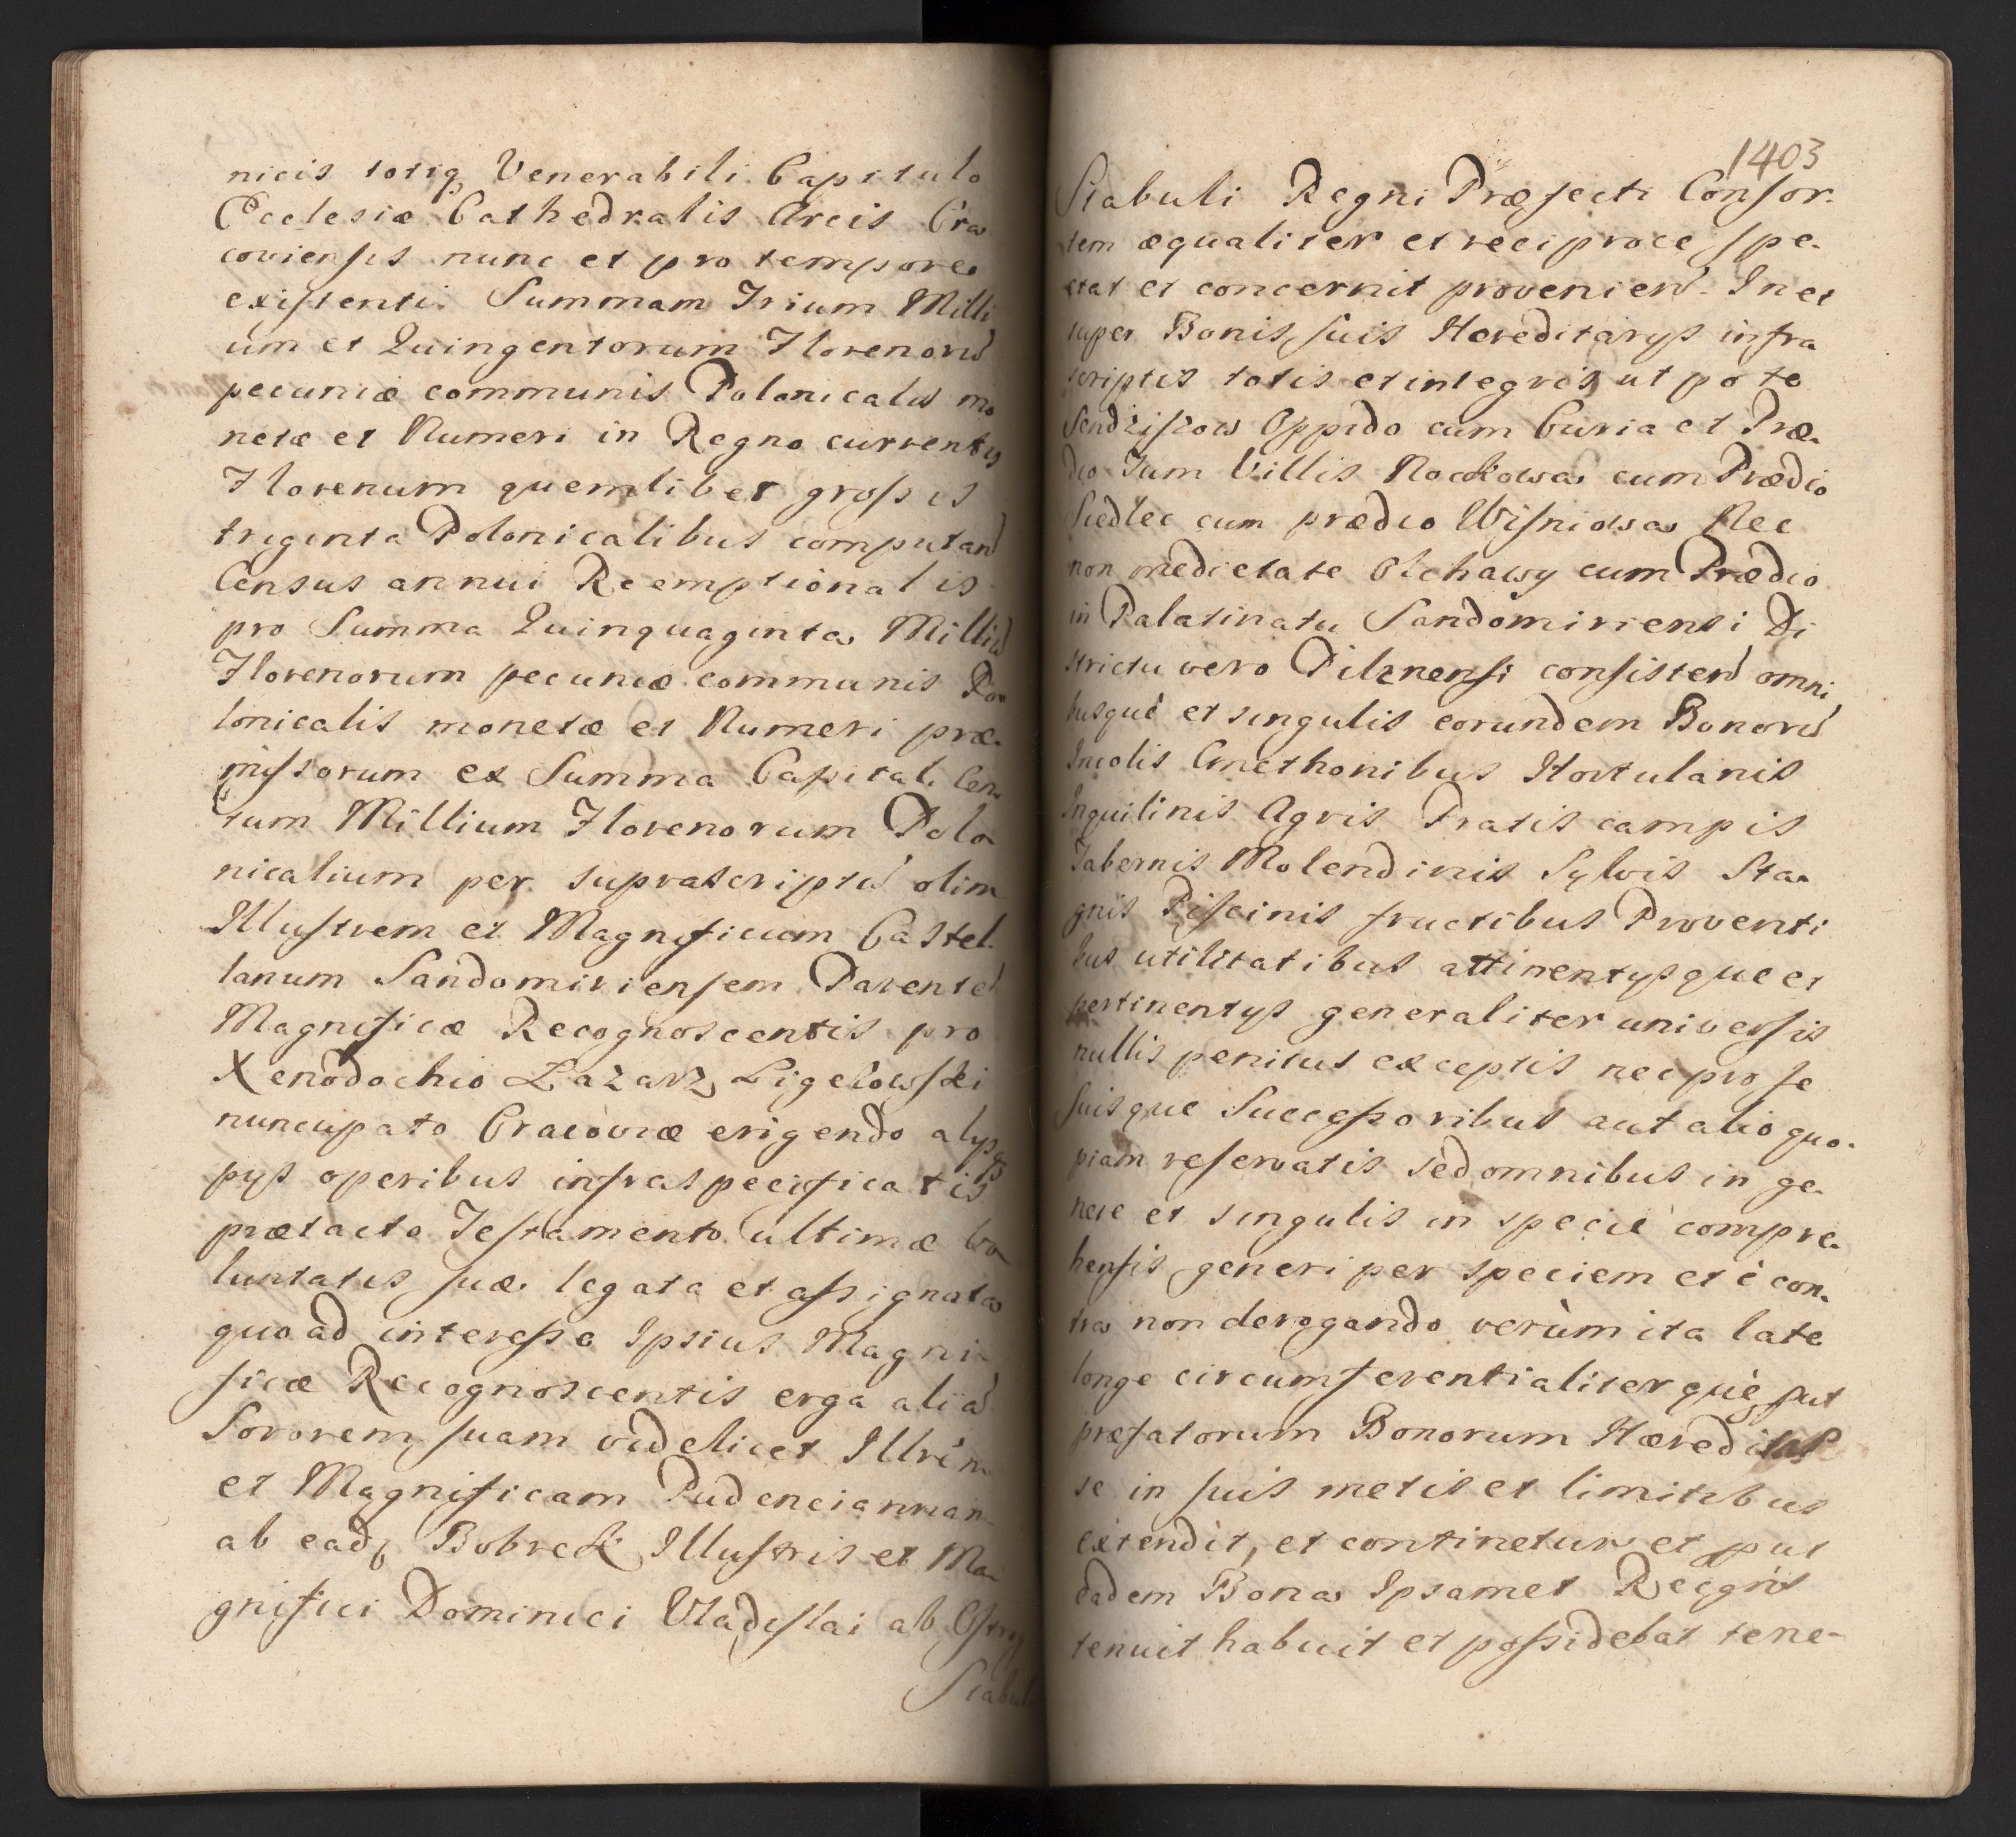 nicis totiq Venerabili Capitulo
Ecclesiæ Cathedralis Arcis Cra
coviensis nunc et pro tempore
existenti. Summam Trium Milli
um et Quingentorum Florenorũ
pecuniæ communis Polonicalis mo
netæ et Numeri in Regno currentis
Florenum quemlibet grossis
triginta Polonicalibus computan̄
Census annui Reemptionalis
pro Summa Quinquaginta Milliũ
Florenorum pecuniæ communis Po
lonicalis monetæ et Numeri præ
missorum ex Summa Capitali Cen
tum Millium Florenorum Polo
nicalium per suprascriptũ olim
Illustrem et Magnificum Castel
lanum Sandomiriensem Parentẽ
Magnificæ Recognoscentis pro
Xenodochio Lazarz Ligelowski
nuncupato Cracoviæ erigendo alysq
pys operibus infraspecificatis
prætacto Testamento ultimæ vo
luntatis suæ legata et assignata
quoad interesse Ipsius Magni
ficæ Recognoscentis erga aliã
Sororem suam videlicet Illrem
et Magnificam Pudenciannam
ab eadq Bobrek Illustris et Ma
gnifici Dominici Vladislai ab Ostrog
Stabuli
1403
Stabuli Regni Præfecti Consor-
tem æqualiter et reciproce spe-
ctat et concernit provenien̄. In et
super Bonis suis Hereditarys infra
scriptis totis et integris ut pote
Sendziszow Oppido cum Curia et Præ-
dio Tum Villis Nockowa cum Prædio
Siedlec cum prædio Wisniowa Nec
non medietate Olchawy cum Prædio
in Palatinatu Sandomiriensi Di
strictu vero Pilznensi consisten̄ omni
busquè et singulis eorundem Bonorũ
Incolis Cmethonibus Hortulanis
Inquilinis Agris Pratis campis
Tabernis Molendinis Sylvis Sta
gnis Piscinis fructibus Proventi
bus utilitatibus attinentysque et
pertinentys generaliter universis
nullis penitus exceptis nec pro se
suisque Successoribus aut alio quo-
piam reservatis sed omnibus in ge-
nere et singulis in specie compre-
hensis generi per speciem et è con-
tra non derogando verùm ita late
longe circumferentialiter què put
præfatorum Bonorum Hæreditas
se in suis metis et limitibus
extendit, et continetur et put
eadem Bona Ipsamet Recgns
tenuit habuit et possidebat tene-